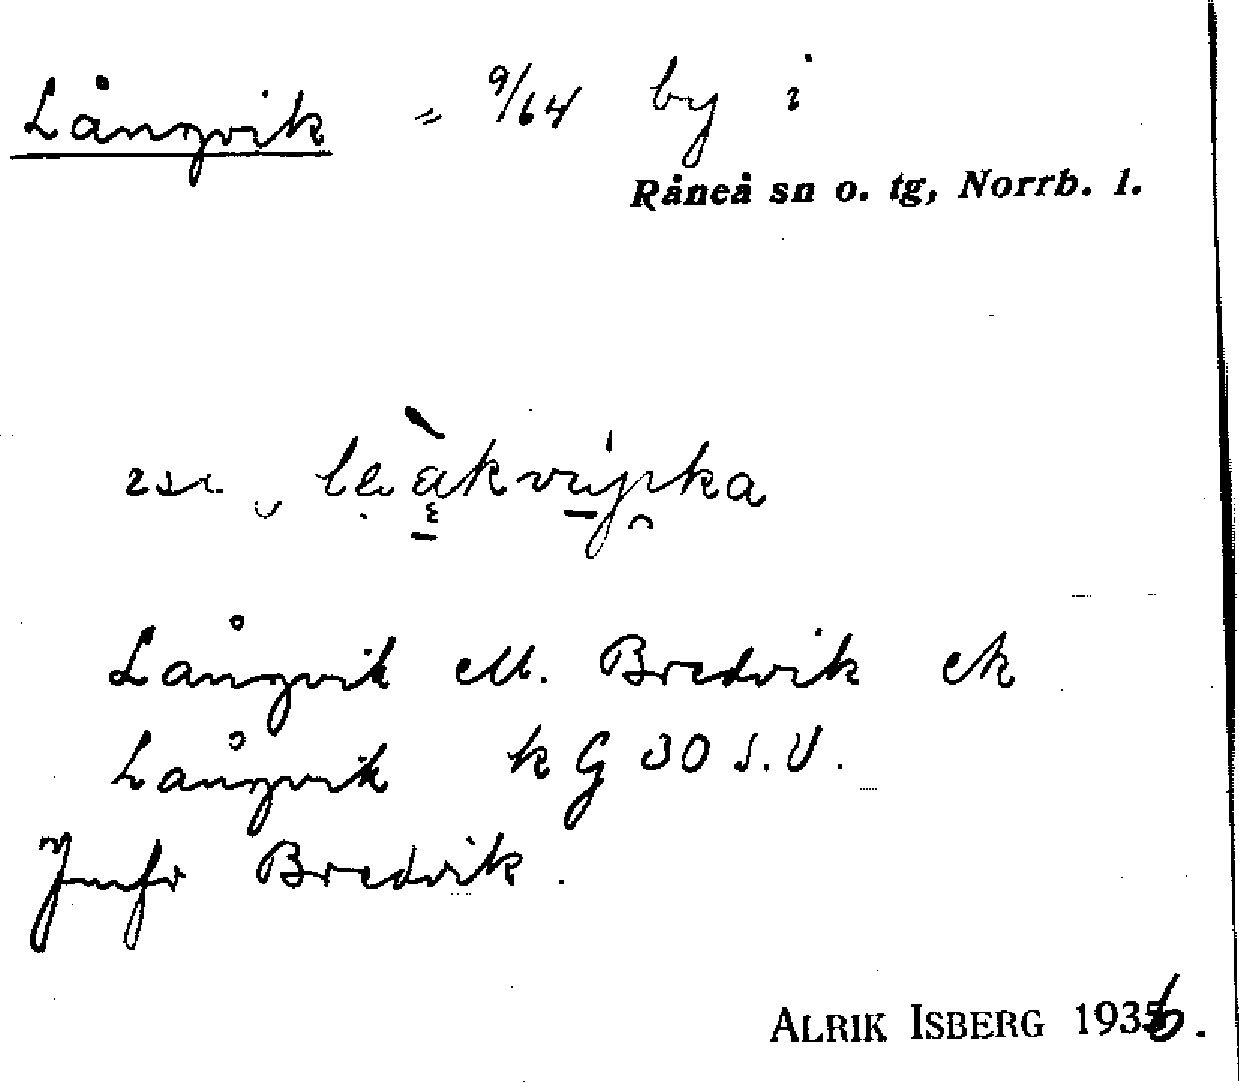 Långvik = 9/64 by i
Råneå sn o. tg, Norrb. l.
Långvik M. Bredvik ek
Långvik k G 30 S.V.
Jmfr Bredvik.
ALRIK ISBERG 1936.